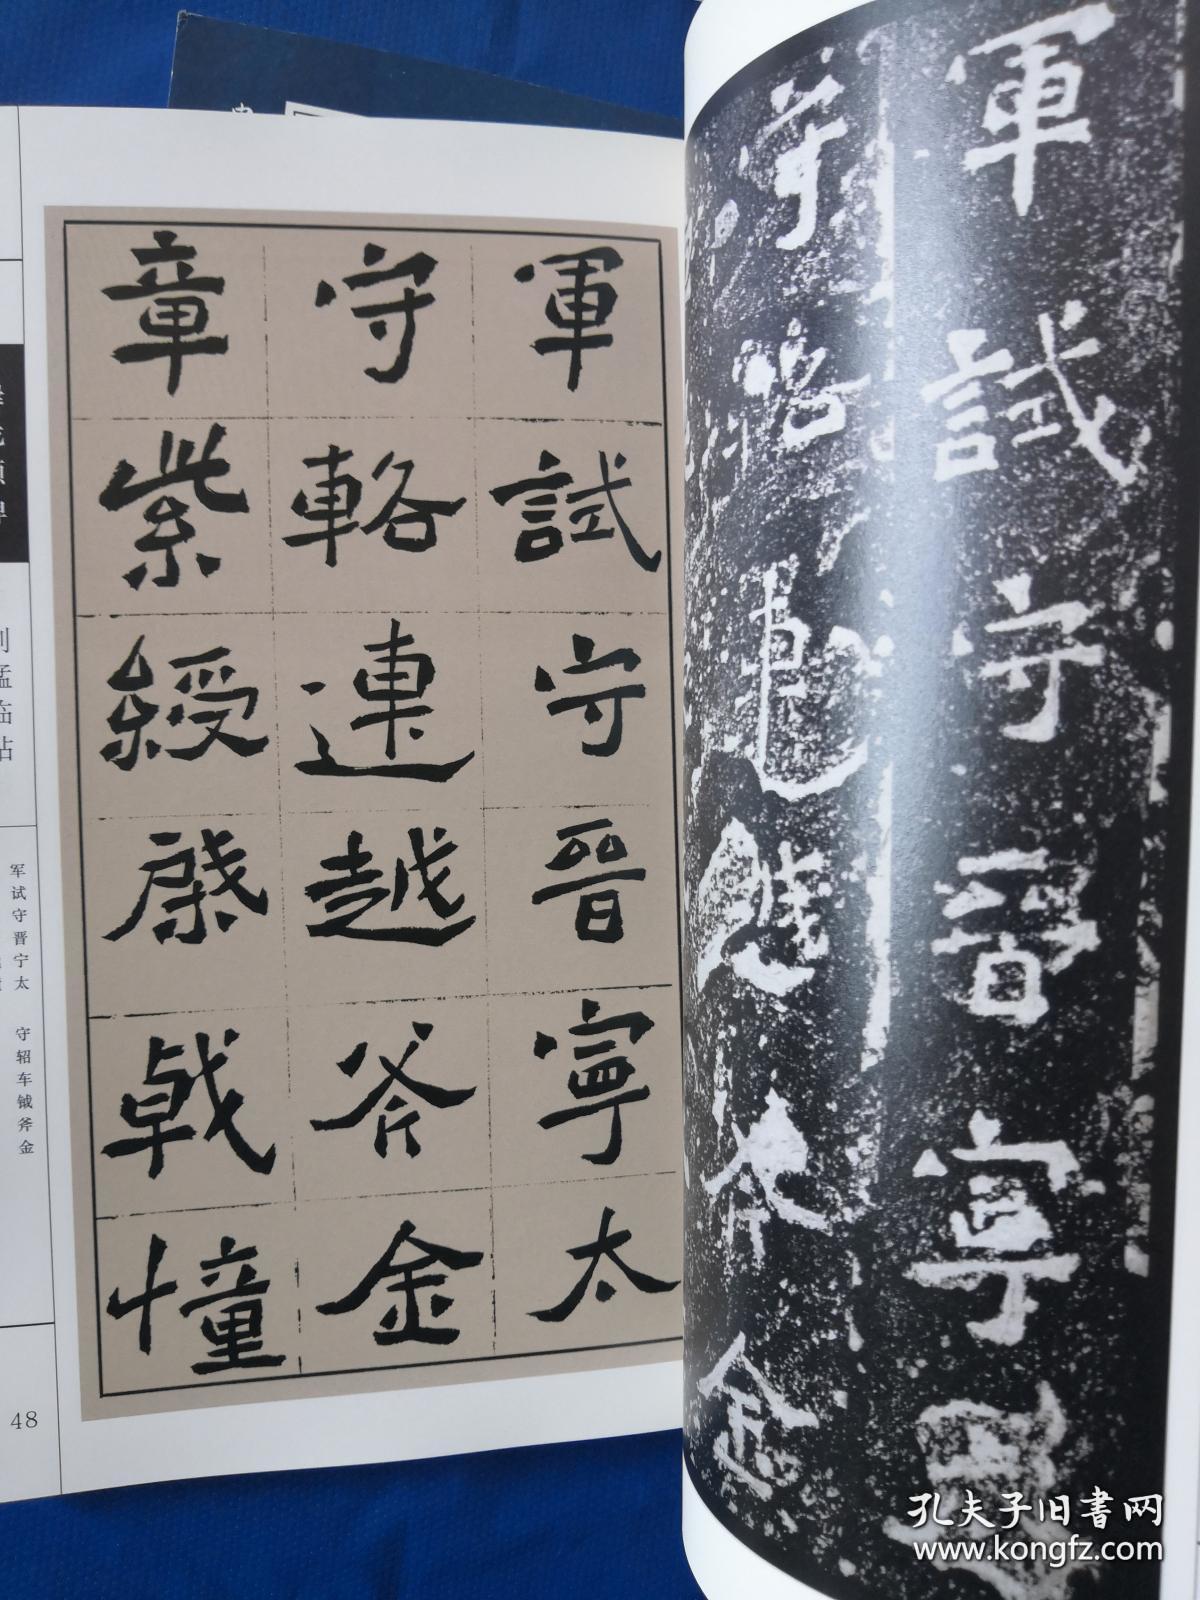 軍試守晉寧太
守輅連越斧金
章紫綬棨戟幢
軍試守晉寧
守輅
金
刘孟临帖
军试守晋宁太 守轺车钺斧金
48
孔夫子旧書网
www.kongfz.com